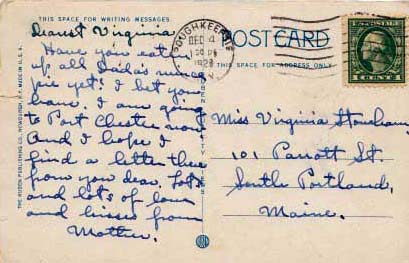 THIS SPACE FOR WRITING MESSAGES.
POSTCARD
THIS SPACE FOR ADDRESS ONLY.
POUGHKEEPSIE
DEC 4
N.Y.
1 CENT 1
Dearest Virginia
Have you eaten
up all Dada's mince
pie yet? I bet you
have. I am going
to Port Chester now
and I hope I
find a letter there
from you dear. Lots
and lots of love
and kisses from
Mother.
Miss Virginia
101 Parrott St.
South Portland,
Maine.
THE RUBEN PUBLISHING CO., NEWBURGH, N.Y. MADE IN U.S.A.